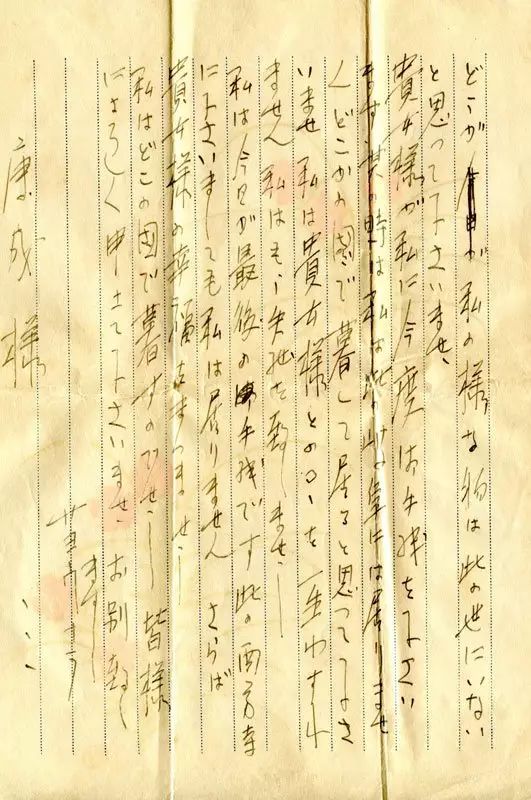 私の様な物は此の世にいない
と思って下さいませ、
貴女様が私に今度お手紙を下さい
ます其の時は私は此の岐阜には居りませ
ん どこかの国で暮して居ると思って下さ
いませ 私は貴女様との○!を一生わすれ
ません 私はもう失礼を致しませう
私は今日が最後の手紙です此の西方寺
に下さいましても私は居りません さらば
貴女様の幸福を ませう
私はどこの国で暮すのでせう 皆様
によろしく申上て下さいませ お別致し
ます
康成様